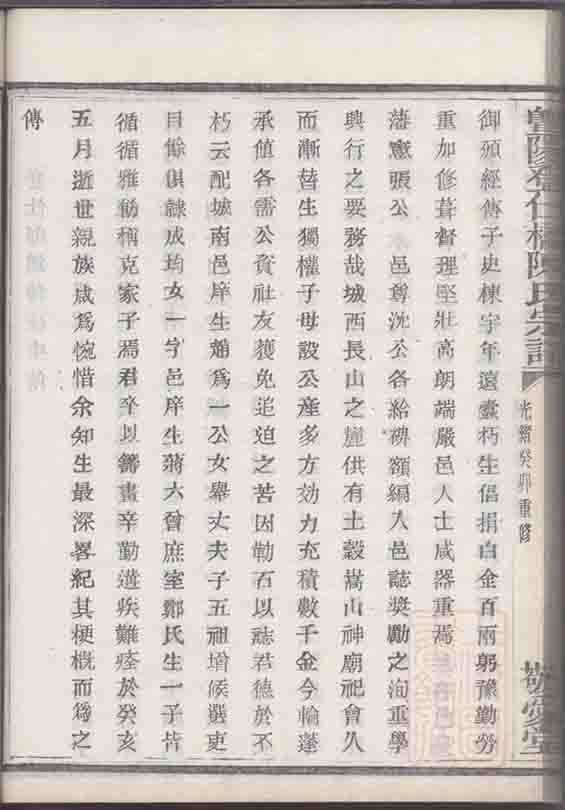 御頒經傳子史棟宇年遠蠹朽生倡捐白金百兩躬豫勤勞
重加修葺督理堅壯高朗端嚴邑人士咸器重焉
藩憲張公 邑尊沈公各給碑額編入邑誌奬勵之洵重學
興行之要務哉城西長山之麓供有土穀嵩山神廟祀會久
而漸替生獨權子母設公產多方効力充積數千金今輪蓬
承值各需公資社友獲免追迫之苦因勒石以誌君德於不
朽云配城南邑庠生趙爲一公女舉丈夫子五祖增候選吏
目餘俱隸成均女一字邑庠生蔣六曾庶室鄭氏生一子皆
循循雅勅稱克家子焉君卒以籌畫辛勤遘疾難痊於癸亥
五月逝世親族咸爲惋惜余知生最深畧紀其梗概而爲之
傳
暨陽孝仁橋陳氏宗譜
光緒癸卯重修
敬愛堂